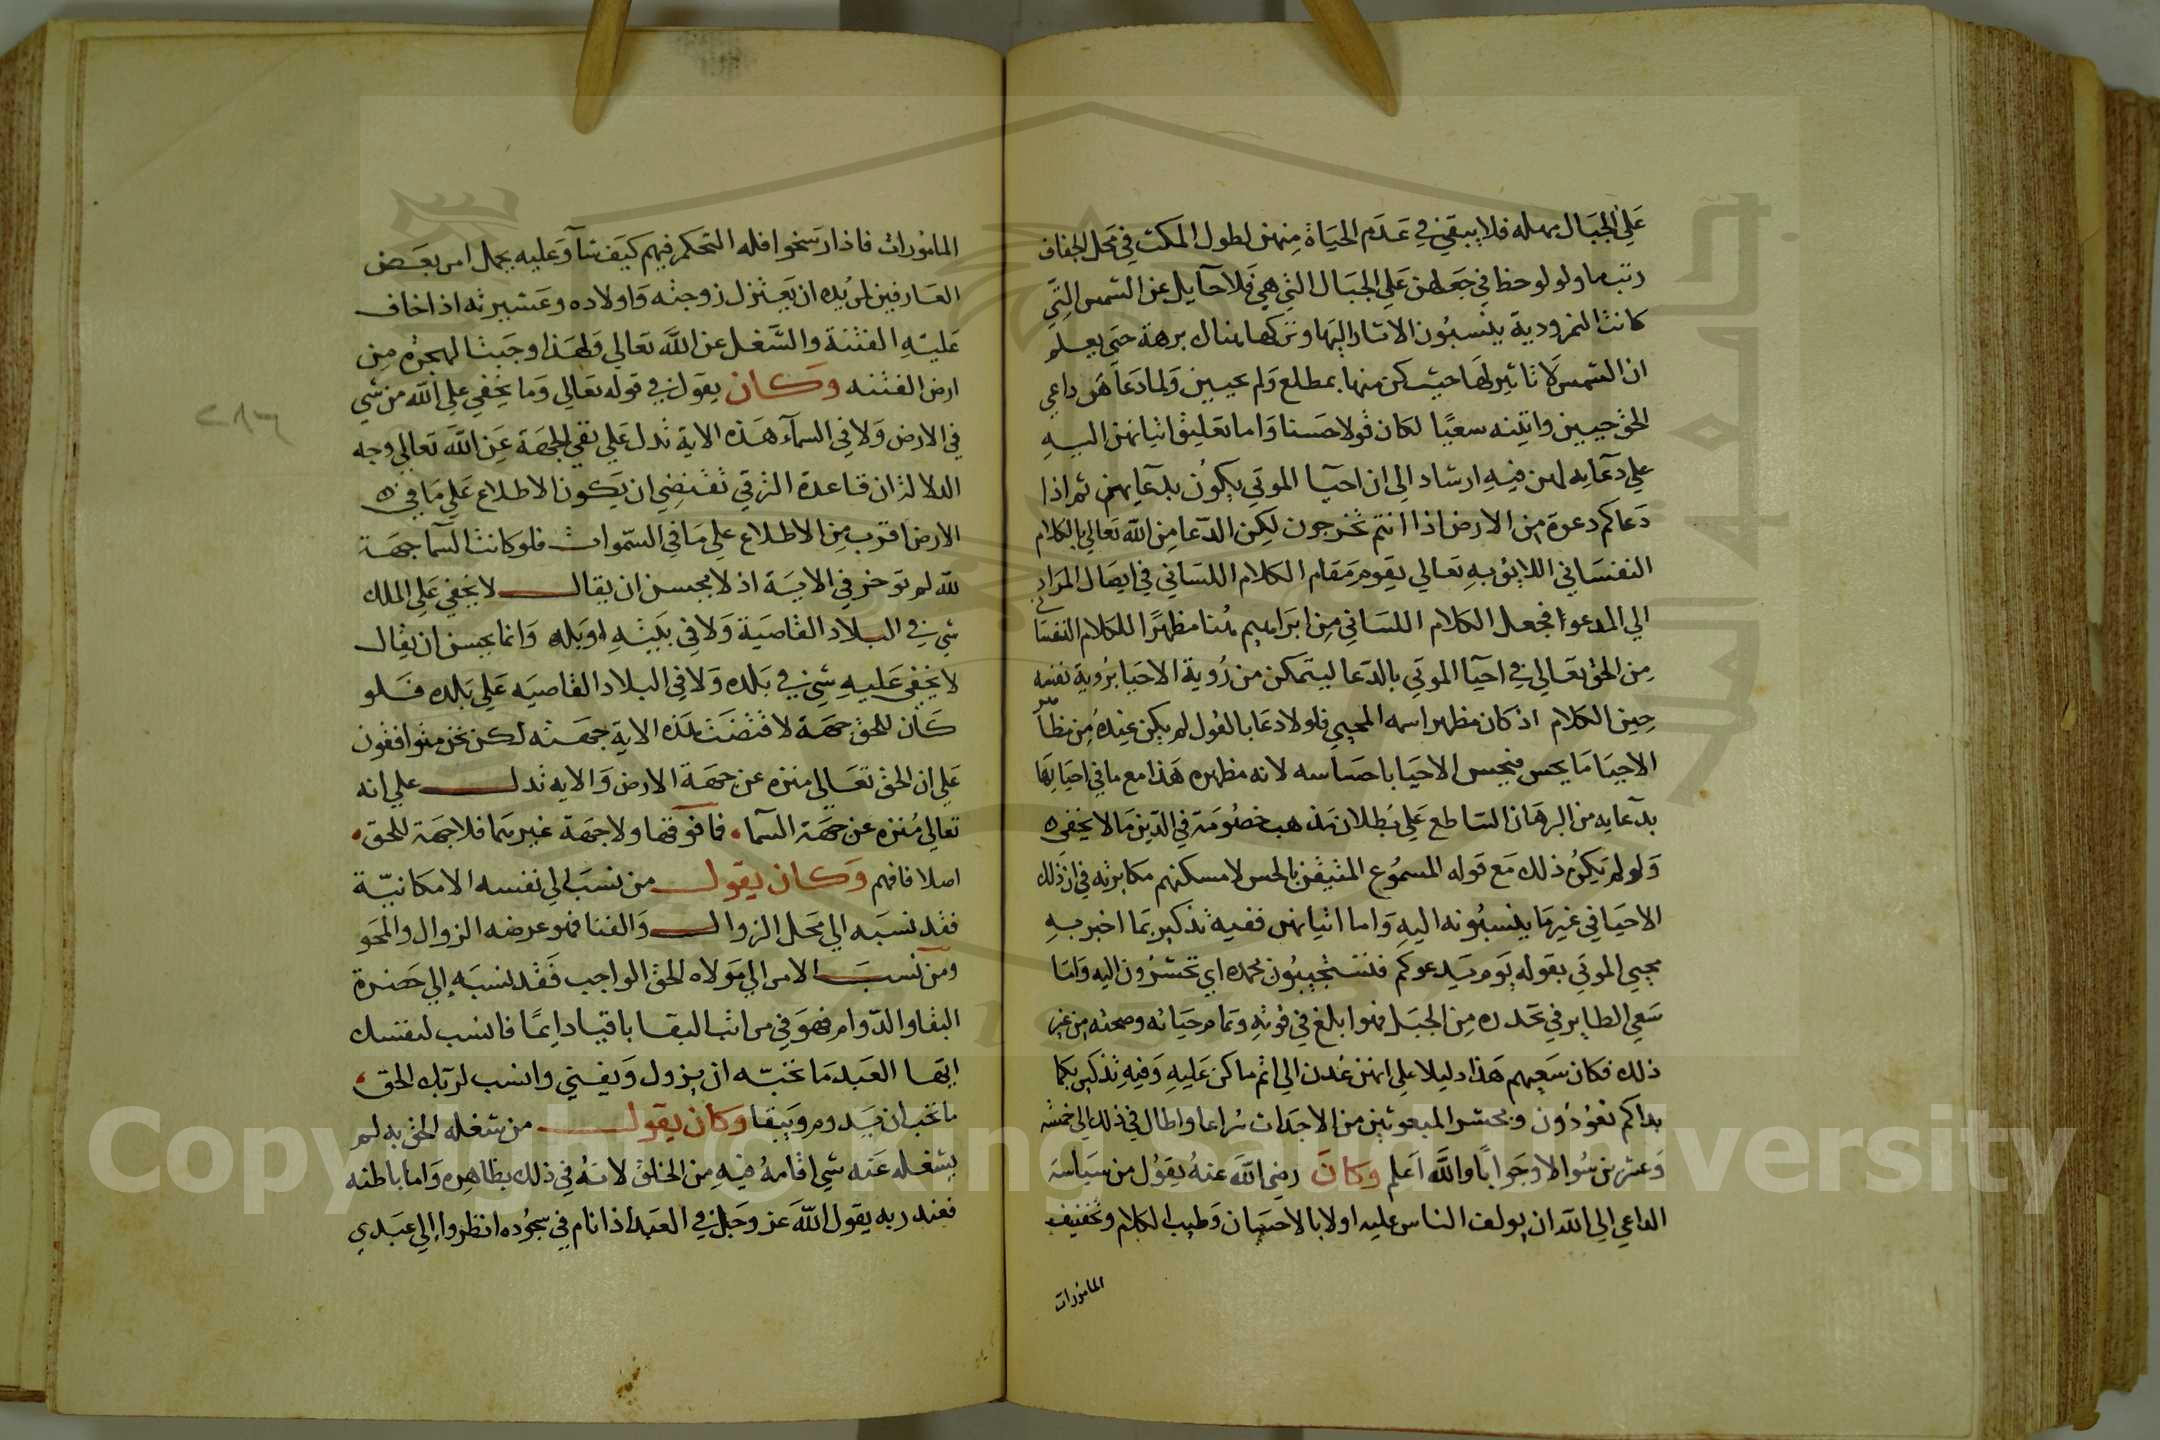 علي الجبال بهله فلا يبقي في عدم الحياة منهن لطول المكث في محل الجفاف
رتب ما ولو لوحظ في جعلهن علي الجبال التي هي فلا حآيل عن الشمس التي
كانت النمرودية ينسبون الاثار اليها وتركها هناك برهة حتي يعلم
ان الشمس لا تاثير لها حيث كن منها بمطلع ولم يحيين ولما دعاهن داعي
الحق حيين واتينه سعيًا لكان قولا حسنا واما تعليق اتيانهن اليه
علي دعآيه لهن فيه ارشاد الي ان احيآ الموتي يكون بدعآيهن ثم اذا
دعاكم دعوة من الارض اذا انتم تخرجون لكن الدعا من الله تعالي بالكلام
النفساني اللايق به تعالي يقوم مقام الكلام اللساني في ايصال المراد
الي المدعو فجعل الكلام اللساني من ابراهيم هنا مظهرًا للكلام النفسا
من الحق تعالي في احيآ الموتي بالدعا ليتمكن من رؤية الاحيا برؤية نفسه
حين الكلام اذ كان مظهر اسمه المحيي فلولا دعا بالقول لم يكن عنده من مظا
الاحيا ما يحس فيحس الاحيا باحساسه لانه مظهره هذا مع ما في احيايها
بدعآيه من البرهان الساطع علي بطلان مذهب خصومة في الدين ما لا يخفي
ولو لم يكن ذلك مع قوله المسموع المتيقن بالحس لامسكنهم مكابرته في ان ذلك
الاحيا في غيرما ينسبونه اليه واما اتيانهن ففيه تذكير بما اخبر به
محيي الموتي بقوله يوم يدعوكم فتستجيبون بحمده اي تحشرون اليه واما
سعي الطاير في تحدره من الجبل فهو ابلغ في قوته وتمام حياته وصحته من غير
ذلك فكان سعيهم هذا دليلا علي انهن عدن الي اتم ما كن عليه وفيه تذكير بكما
بداكم تعودون وبحشر المبعوثين من الاجداث سراعا واطال في ذلك الي خمسة
وعشرين سوالا وجوابًا والله اعلم وكان رضي الله عنه يقول من سياسة
الداعي الي الله ان يولف الناس عليه اولا بالاحسان وطيب الكلام وتخفيف
المامورات
المامورات فاذا رسخوا فله التحكم فيهم كيف شآ وعليه يحمل امر بعض
العارفين لمريده ان يعتزل زوجته واولاده وعشيرته اذا خاف
عليه الفتنة والشغل عن الله تعالي ولهذا وجبت الهجرة من
ارض الفتنه وكان يقول في قوله تعالي وما يخفي علي الله من شي
في الارض ولا في السمآ هذه الاية تدل علي نفي الجهة عن الله تعالي وجه
الدلالة ان قاعدة الترقي تقتضي ان يكون الاطلاع علي ما في
الارض اقرب من الاطلاع علي ما في السموات فلو كانت السما جهة
لله لم توخر في الاية اذ لا يحسن ان يقال لا يخفي علي الملك
شي في البلاد القاصية ولا في بيته او بلده وانما يحسن ان يقال
لا يخفي عليه شي في بلده ولا في البلاد القاصيه علي بلده فلو
كان للحق جهة لاقتضت هذه الاية جهته لكن نحن متوافقون
علي ان الحق تعالي منزه عن جهة الارض والايه تدل علي انه
تعالي منزه عن جهة السما فما فوقها ولا جهة غيرهما فلا جهة للحق
اصلا فافهم وكان يقول من نسب الي نفسه الامكانية
فقد نسبه الي محل الزوال والفنا فهو عرضه الزوال والمحو
ومن نسب الامر الي مولاه الحق الواجب فقد نسبه الي حضرة
البقا والدوام فهو في مراتب البقا باقيا دايمًا فانسب لنفسك
ايها العبد ما تحبه ان يزول ويفني وانسب لربك الحق
ما تحب ان يدوم ويبقا وكان يقول من شغله الحق به لم
يشغله عنه شي اقامه فيه من الخلق لانه في ذلك بظاهره واما باطنه
فعند ربه يقول الله عز وجل في العبد اذا نام في سجوده انظروا الي عبدي
٢٨٦
Copyright © King Saud University
جامعة الملك سعود
1957